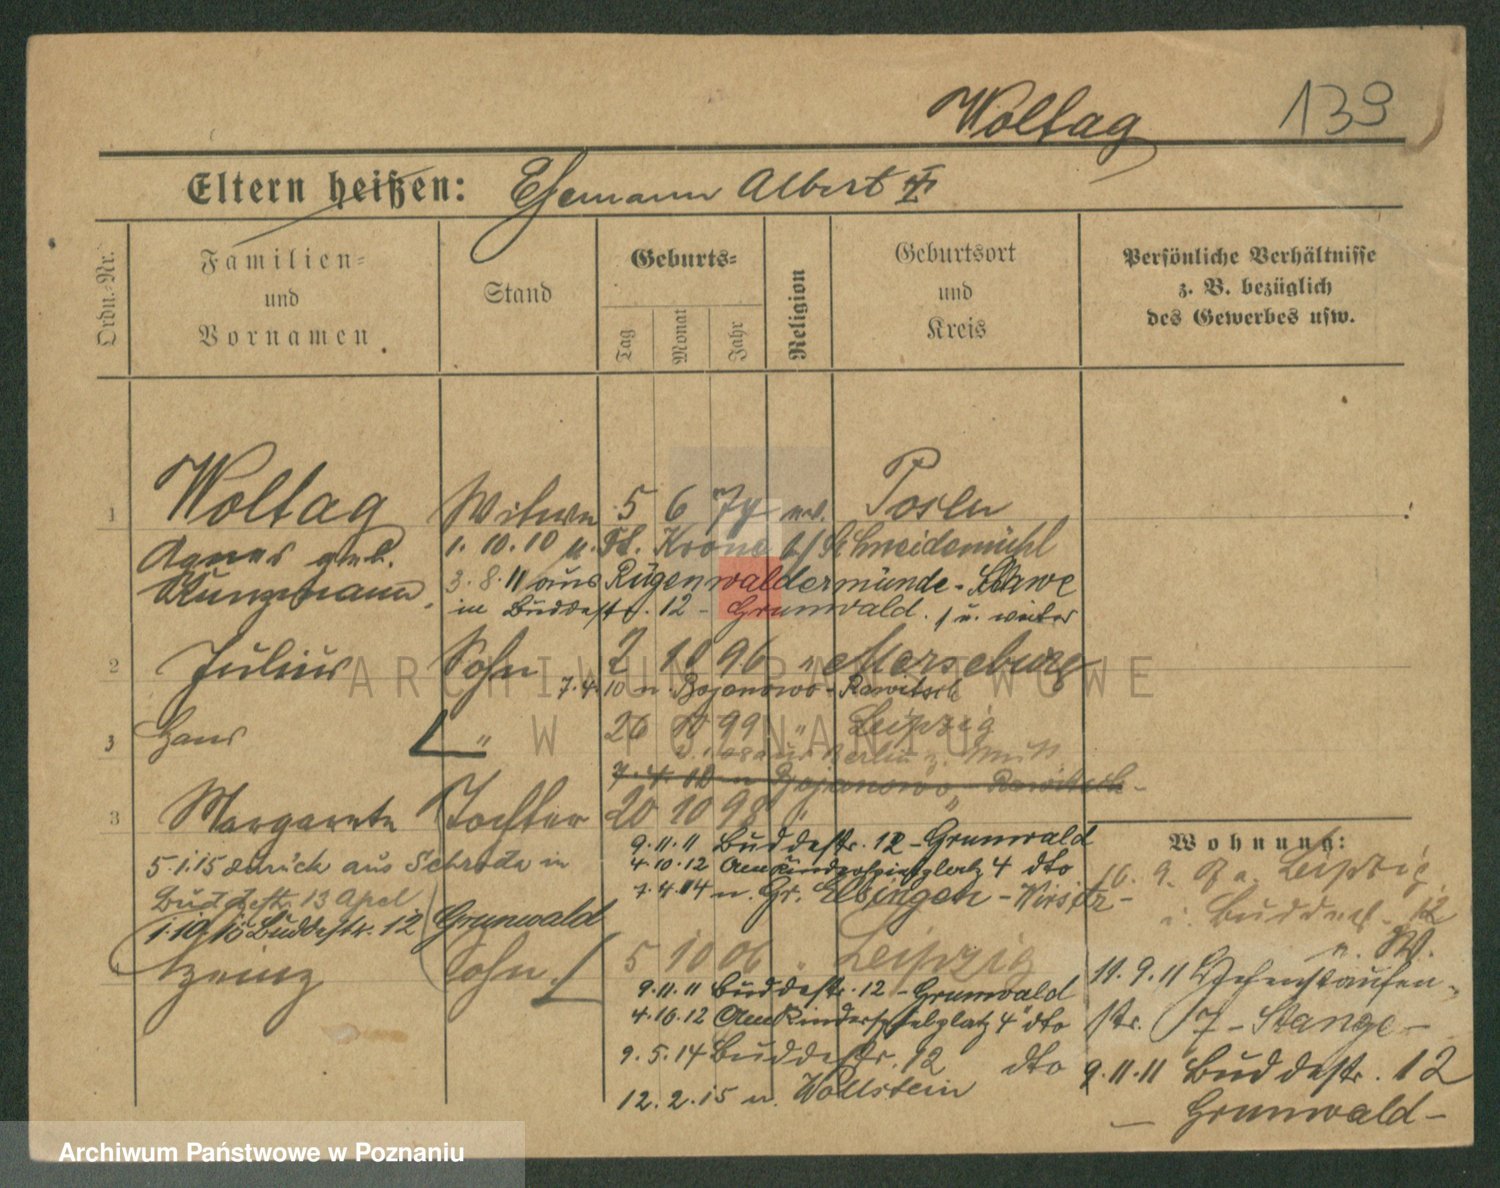 Woltag 139
Eltern heißen: Ehemann Albert
Ordn.-Nr.
Familien-
und
Vornamen
Stand
Geburts-
Tag
Monat
Jahr
Religion
Geburtsort
und
Kreis
Persönliche Verhältnisse
z. B. bezüglich
des Gewerbes usw.
1 Woltag Witwe 5 6 74 ev. Posen
Agnes geb. 1. 10. 10 n. Dt. Krone Schneidemühl
Kunzmann 3. 8. 11 aus Rügenwaldermünde - Schlawe
in Buddestr. 12 - Grunwald u. weiter
2 Julius Sohn 2 10 96 " Merseburg
7. 4. 10 n. Bojanowo - Rawitsch
3 Hans " 26 10 99 " Leipzig
aus Berlin z. Mutt.
7. 4. 10 n Bojanowo - Rawitsch -
3 Margarete Tochter 20 10 98 "
9. 11. 11 Buddestr. 12 - Grunwald
4. 10. 12 Am Kinderspielplatz 4 dto
7. 4. 14 n. Gr. Elsingen - Wirsitz -
5. 1. 15 zurück aus Schroda in
Buddestr. 13 Apel
1. 10. 15 Buddestr. 12 Grunwald
Heinz Sohn 5 10 06 " Leipzig
9. 11. 11 Buddestr. 12 - Grunwald
4. 10. 12 Am Kinderspielplatz 4 dto
9. 5. 14 Buddestr. 12 dto
12. 2. 15 n. Wollstein
Wohnung:
9. a. Leipzig
i. Buddestr. 12
n. W.
11. 9. 11 Hohenstaufen-
str. 17 - Stange -
9. 11. 11 Buddestr. 12
- Grunwald -
ARCHIWUM PAŃSTWOWE
W POZNANIU
Archiwum Państwowe w Poznaniu